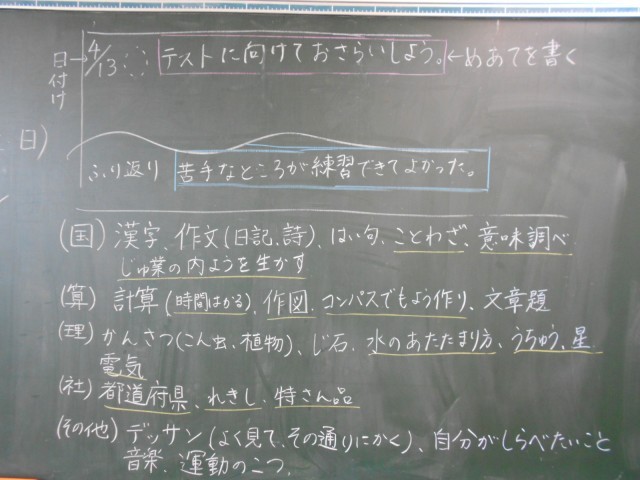 日付け 4/13 テストに向けておさらいしよう。←めあてを書く
日)
ふり返り 苦手なところが練習できてよかった。
(国) 漢字、作文(日記、詩)、はい句、ことわざ、意味調べ
じゅ業の内ようを生かす
(算) 計算(時間はかる)、作図、コンパスでもよう作り、文章題
(理) かんさつ(こん虫、植物)、じ石、水のあたたまり方、うちゅう、星
電気
(社) 都道府県、れきし、特さん品
(その他) デッサン(よく見て、その通りにかく)、自分がしらべたいこと
音楽、運動のこつ、